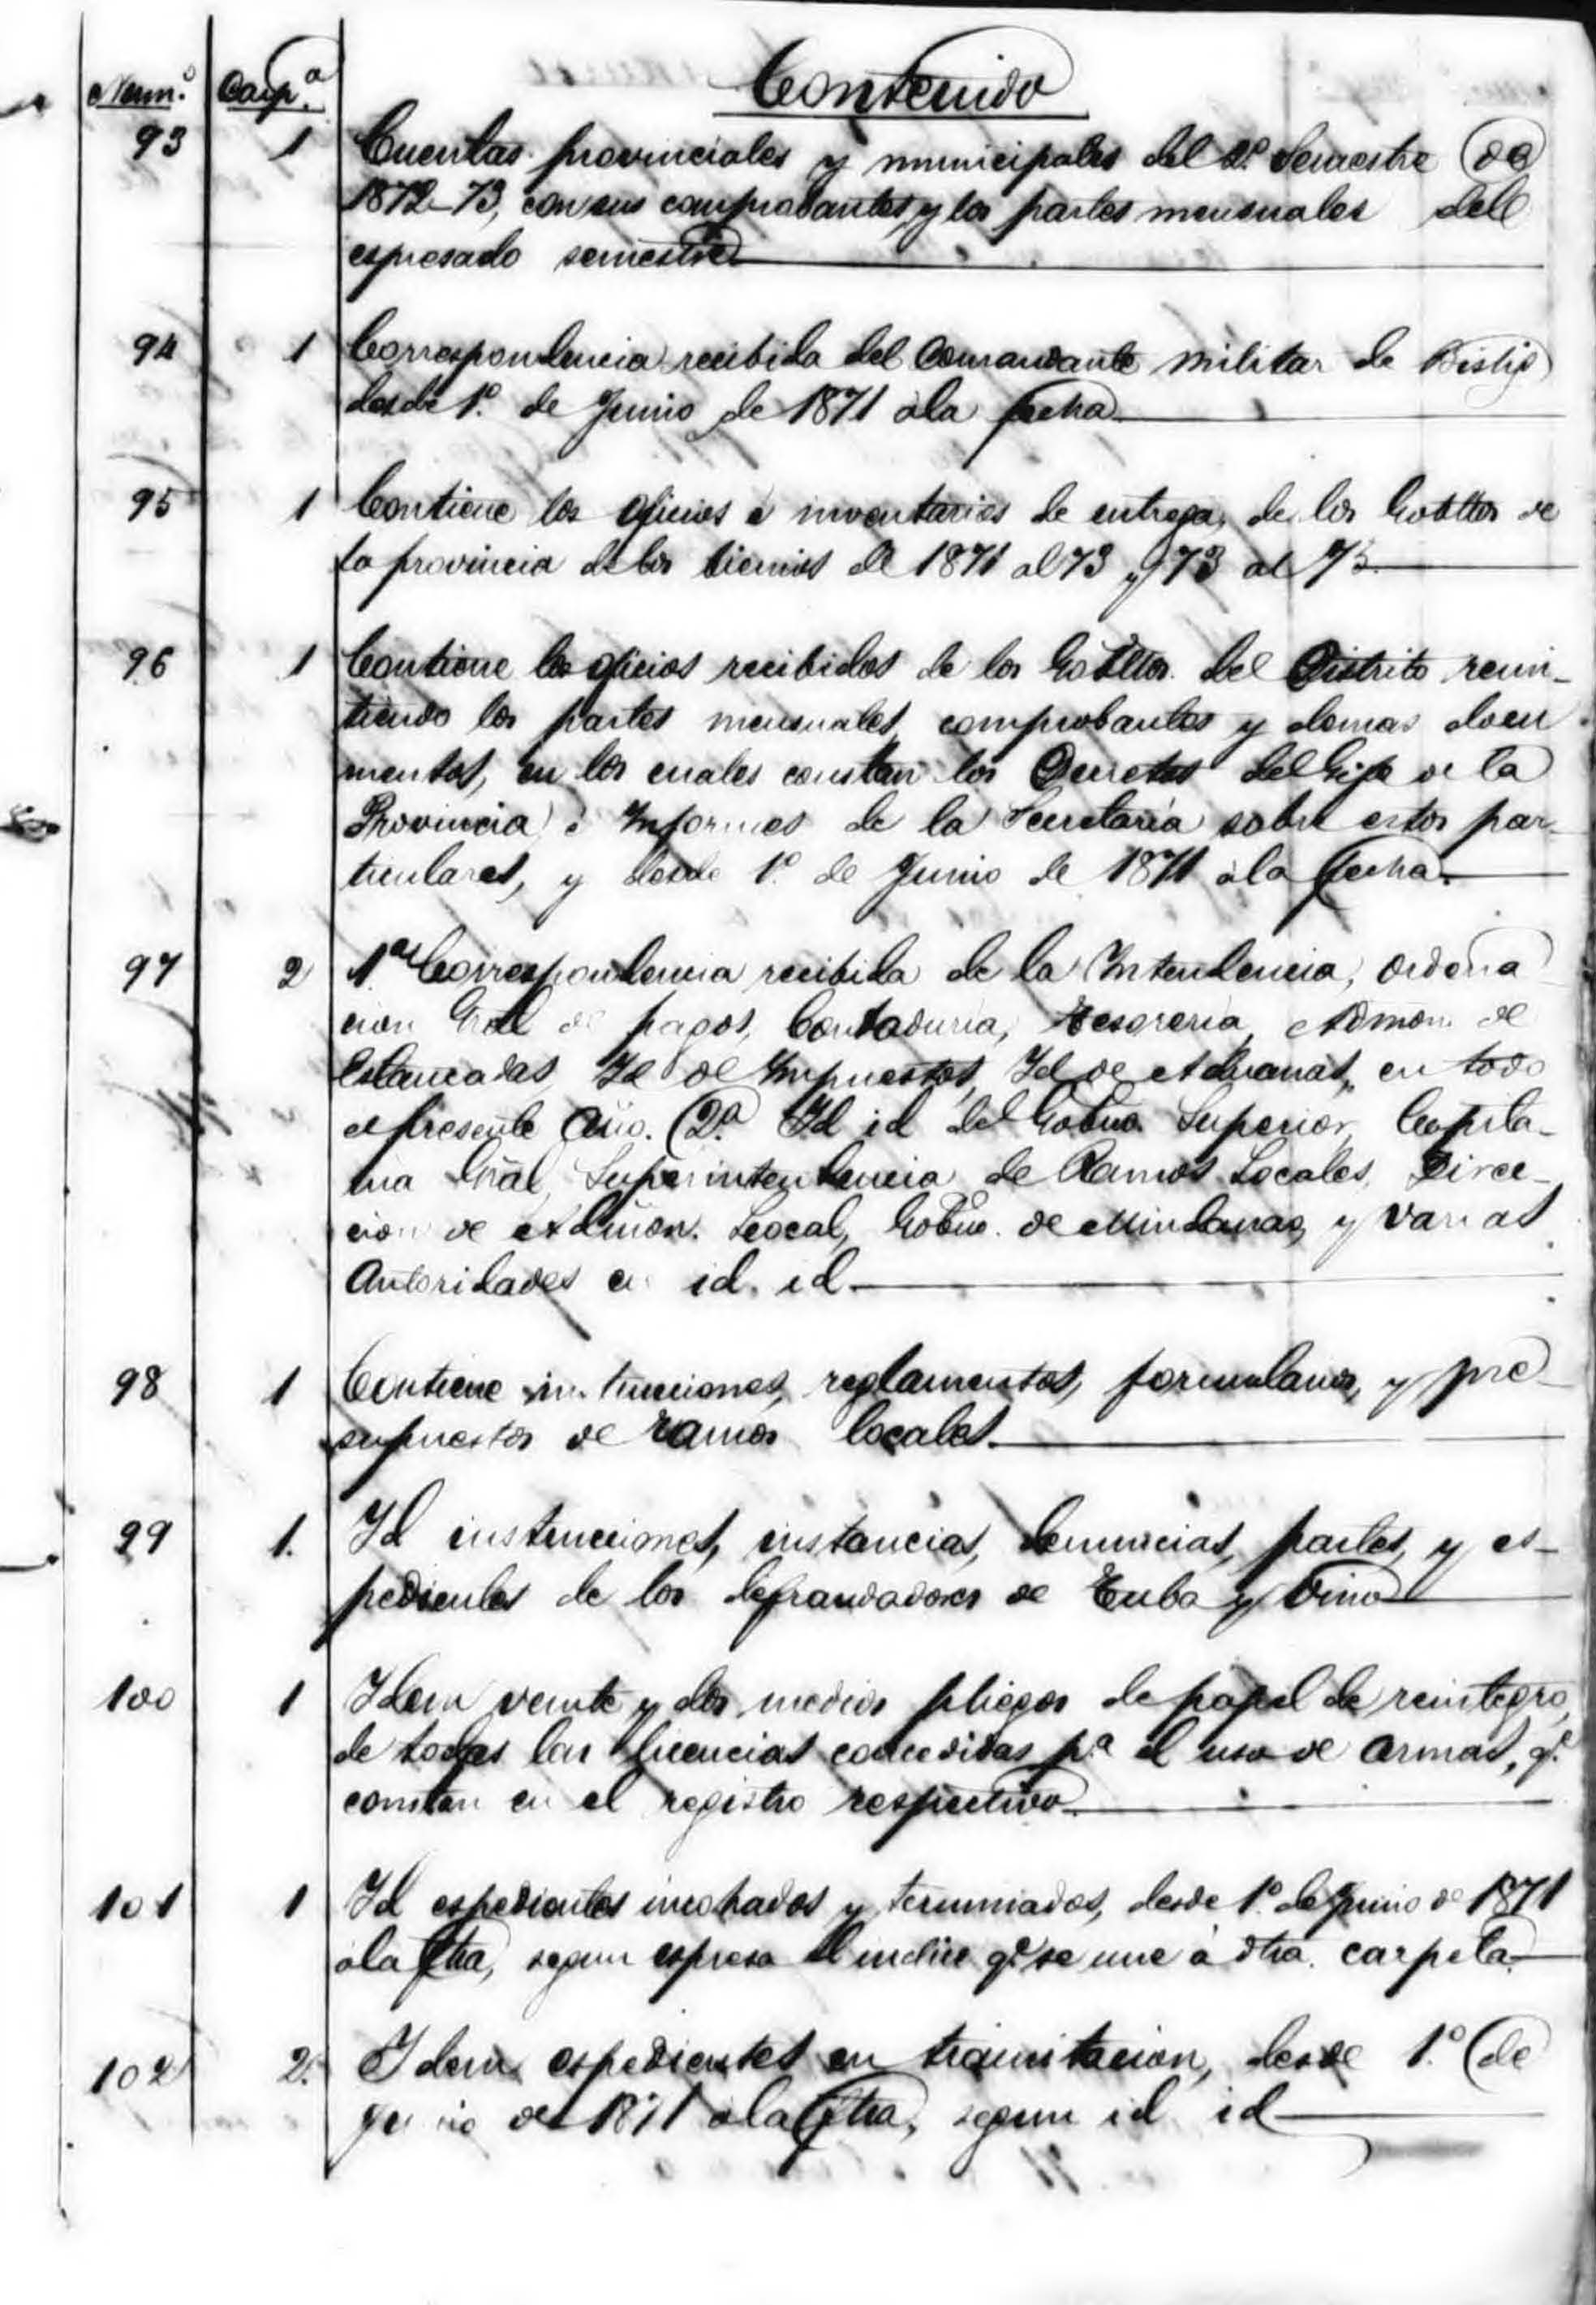 Num.º Carp.ª Contenido
93 1 Cuentas provinciales y municipales del 2º Semestre de
1872-73, con sus comprobantes, y los partes mensuales del
espresado semestre
94 1 Correspondencia recibida del Comandante militar de Bislig
desde 1º. de Junio de 1871 á la fecha
95 1 Contiene los oficios é inventarios de entrega, de los Gobllos de
la provincia de los bienios de 1871 al 73 y 73 al 75.
96 1 Contiene los oficios recibidos de los Gobllos. del Distrito remi-
tiendo los partes mensuales, comprobantes y demas docu
mentos, en los cuales constan los Decretos del Gefe de la
Provincia é Informes de la Secretaría sobre estos par-
ticulares, y desde 1º. de Junio de 1871 á la fecha.
97 2 1ª Correspondencia recibida de la Intendencia, Ordena
cion Gral de pagos, Contaduría, Tesorería, Admon de
Estancadas Id de Impuestos, Id de Aduanas, en todo
el presente Año. 2ª. Id id del Gobno. Superior, Capita-
nia Gral, Superintendencia de Ramos Locales, Direc-
cion de Admon. Local, Gobno. de Mindanao, y varias
Autoridades en id. id.
98 1 Contiene instrucciones, reglamentos, formularios, y pre-
supuestos de ramos locales.
99 1. Id instrucciones, instancias, denuncias, partes, y es-
pedientes de los defraudadores de Tuba y Vino
100 1 Idem veinte y dos medios pliegos de papel de reintegro,
de todas las licencias concedidas p.ª el uso de armas, q.e
constan en el registro respectivo.
101 1 Id espedientes incohados y terminados, desde 1º. de Junio de 1871
á la fha, segun espresa el indice q.e se une á dha. carpeta.
102 2. Idem espedientes en tramitacion, desde 1º. de
Junio de 1871 á la fha, segun id id